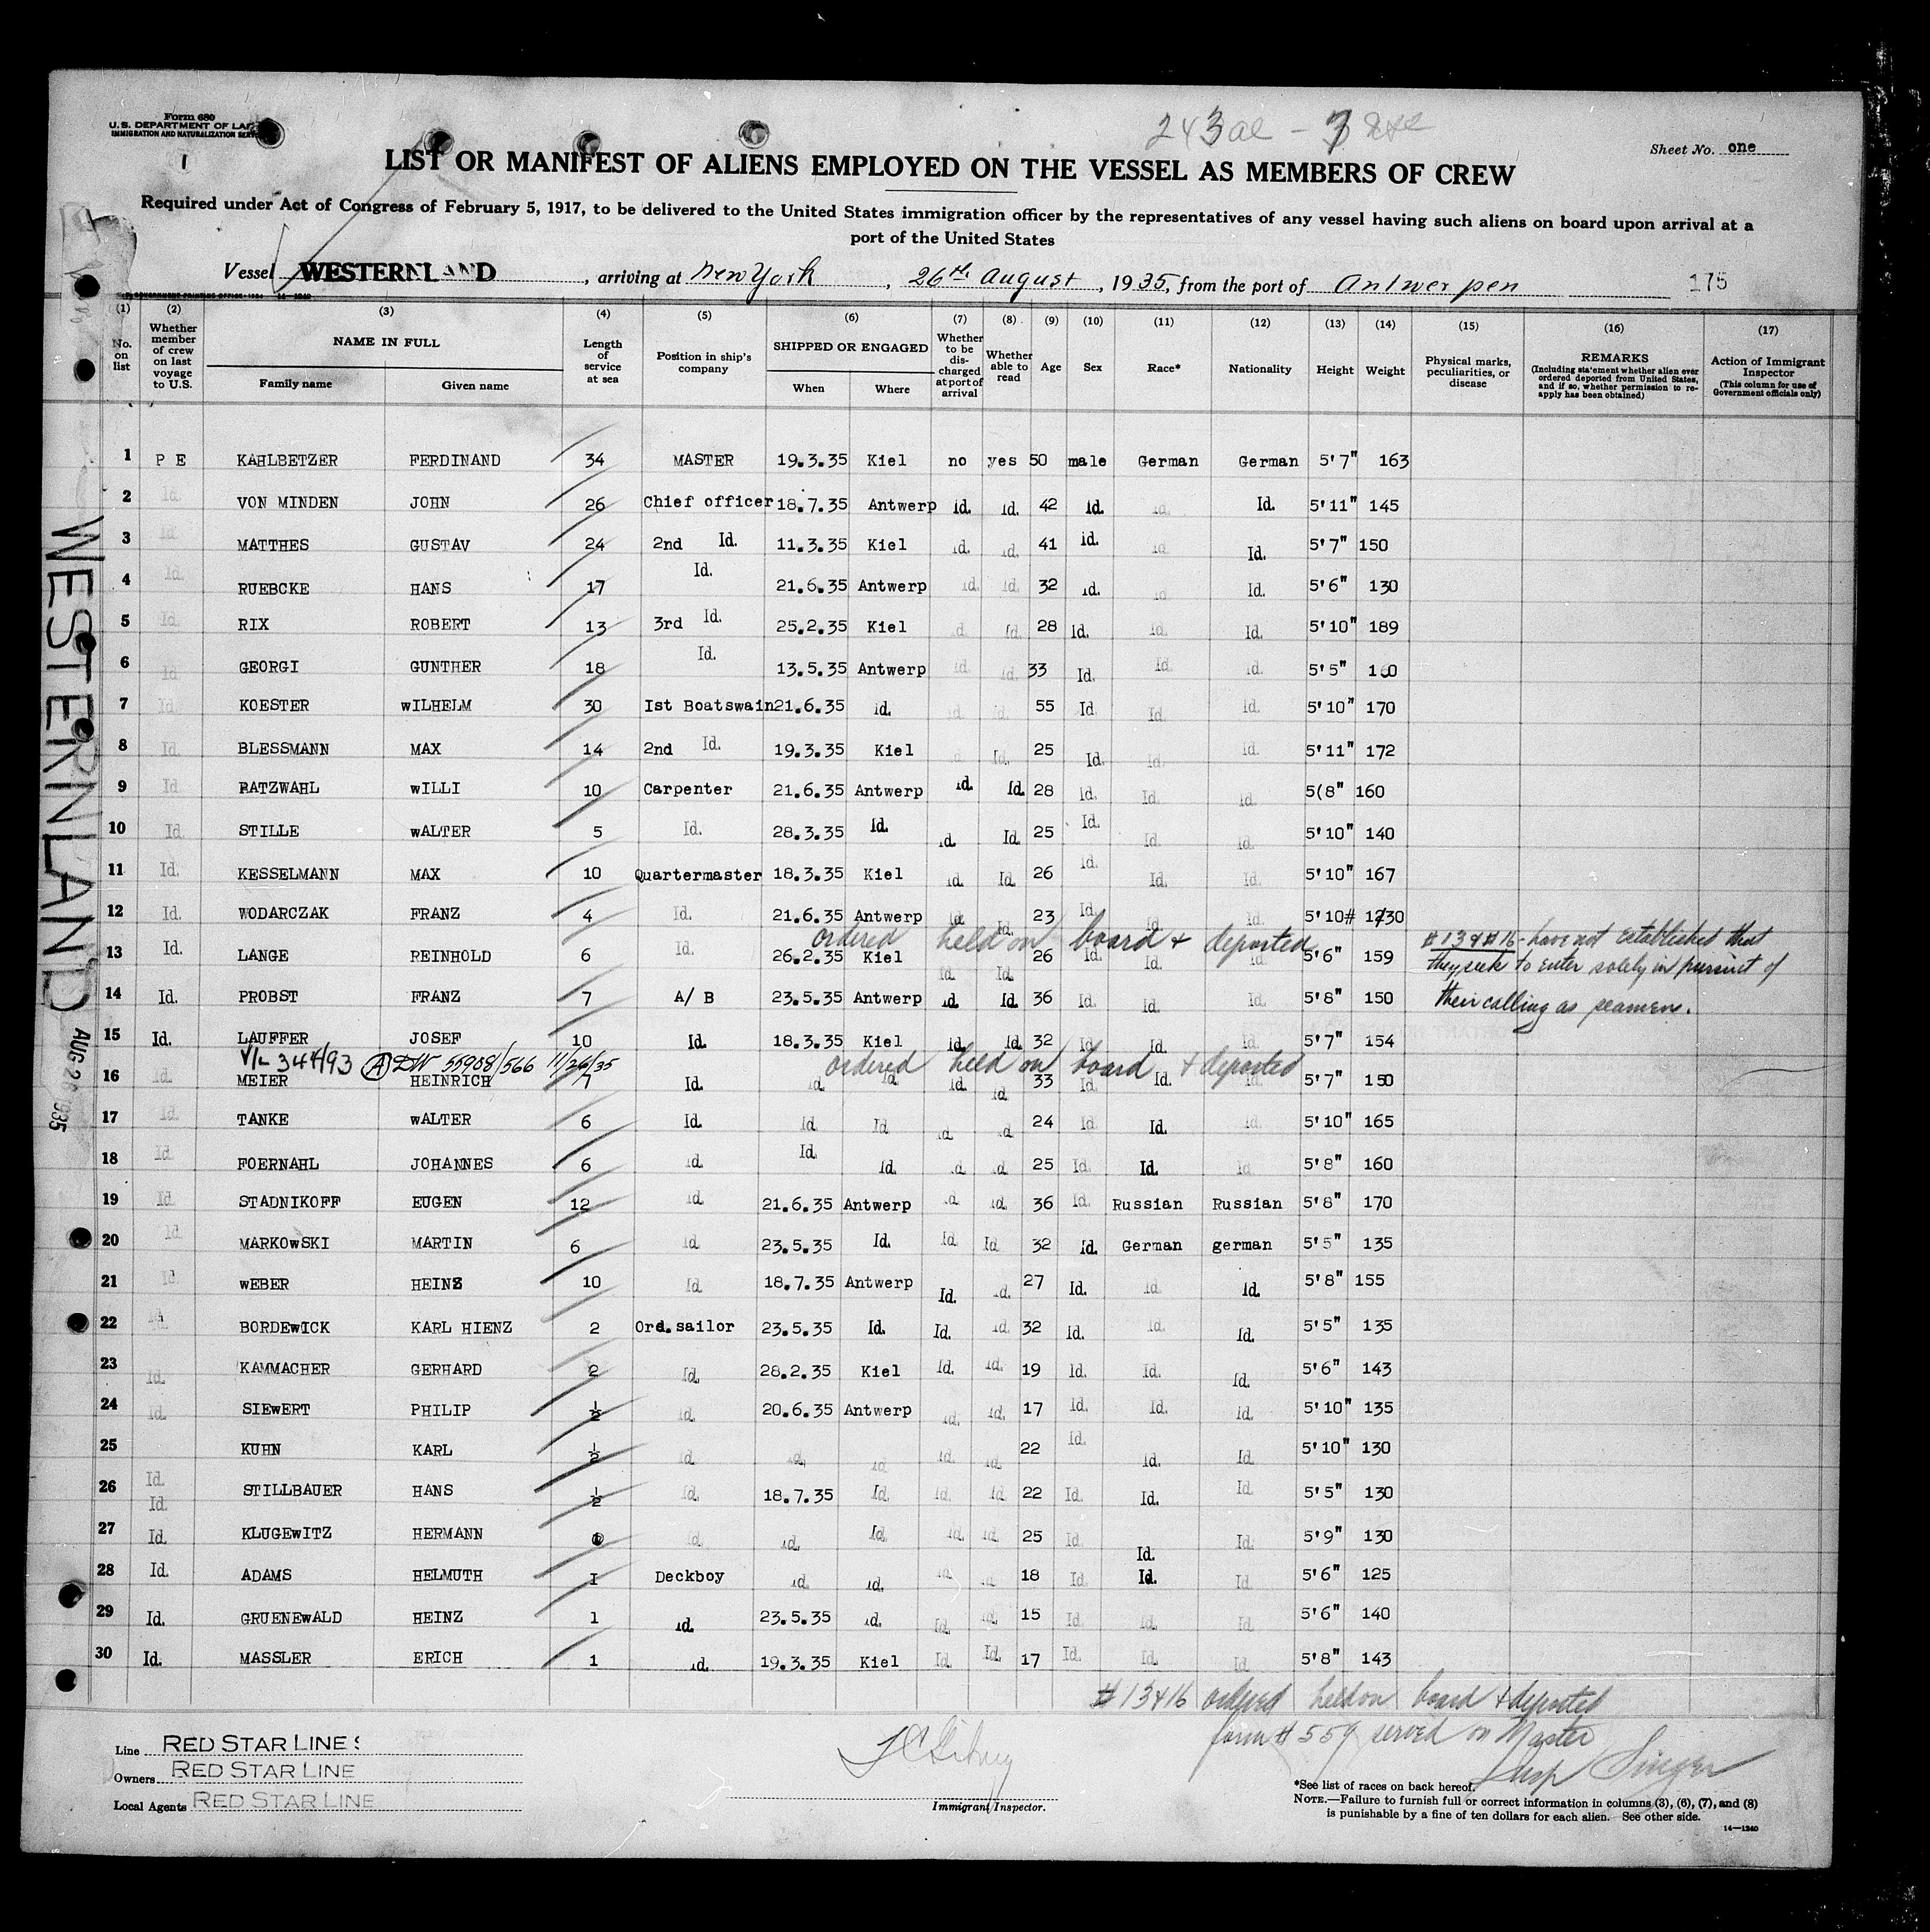 Form 680
U.S. DEPARTMENT OF LA
IMMIGRATION AND NATURALIZATION SER
1
243 al - 3
Sheet No. one
LIST OR MANIFEST OF ALIENS EMPLOYED ON THE VESSEL AS MEMBERS OF CREW
Required under Act of Congress of February 5, 1917, to be delivered to the United States immigration officer by the representatives of any vessel having such aliens on board upon arrival at a
port of the United States
Vessel WESTERNLAND, arriving at New York, 26th August, 1935, from the port of Antwerpen 175
(1) No. on list (2) Whether member of crew on last voyage to U.S. (3) NAME IN FULL Family name Given name (4) Length of service at sea (5) Position in ship's company (6) SHIPPED OR ENGAGED When Where (7) Whether to be discharged at port of arrival (8) Whether able to read (9) Age (10) Sex (11) Race* (12) Nationality (13) Height (14) Weight (15) Physical marks, peculiarities, or disease (16) REMARKS (Including statement whether alien ever ordered deported from United States, and if so, whether permission to re-apply has been obtained) (17) Action of Immigrant Inspector (This column for use of Government officials only)
1 P E KAHLBETZER FERDINAND 34 MASTER 19.3.35 Kiel no yes 50 male German German 5'7" 163
2 Id. VON MINDEN JOHN 26 Chief officer 18.7.35 Antwerp id. id. 42 id. id. Id. 5'11" 145
3 Id. MATTHES GUSTAV 24 2nd Id. 11.3.35 Kiel id. id. 41 id. id. Id. 5'7" 150
4 Id. RUEBCKE HANS 17 Id. 21.6.35 Antwerp id. id. 32 id. id. Id. 5'6" 130
5 Id. RIX ROBERT 13 3rd Id. 25.2.35 Kiel id. Id. 28 Id. Id. Id. 5'10" 189
6 Id GEORGI GUNTHER 18 Id. 13.5.35 Antwerp id. id. 33 Id. Id. id. 5'5" 160
7 Id. KOESTER wILHELM 30 Ist Boatswain 21.6.35 id. id. id. 55 Id Id. Id. 5'10" 170
8 Id. BLESSMANN MAX 14 2nd Id. 19.3.35 Kiel id. Id. 25 Id. Id. Id. 5'11" 172
9 Id. RATZWAHL wILLI 10 Carpenter 21.6.35 Antwerp id. Id. 28 Id. Id. Id. 5(8" 160
10 Id. STILLE wALTER 5 Id. 28.3.35 Id. id. Id. 25 Id. Id. Id. 5'10" 140
11 Id. KESSELMANN MAX 10 Quartermaster 18.3.35 Kiel id. Id. 26 Id. Id. Id. 5'10" 167
12 Id. WODARCZAK FRANZ 4 Id. 21.6.35 Antwerp Id. Id. 23 Id. Id. Id. 5'10# 1230
ordered held on board & deported
13 Id. LANGE REINHOLD 6 Id. 26.2.35 Kiel Id. Id. 26 Id. Id. Id. 5'6" 159
#13 & #16 - have not established that
they seek to enter solely in pursuit of
their calling as seamen.
14 Id. PROBST FRANZ 7 A/ B 23.5.35 Antwerp id. Id. 36 Id. Id. Id. 5'8" 150
15 Id. LAUFFER JOSEF 10 Id. 18.3.35 Kiel Id. Id. 32 Id Id. Id. 5'7" 154
V/L 344/93 (A) DW 55908/566 11/26/35 ordered held on board & deported
16 Id. MEIER HEINRICH 7 Id. id. Id. Id. Id. 33 Id. Id. Id. 5'7" 150
17 Id. TANKE wALTER 6 Id. Id. Id. id. id. 24 Id. Id. Id. 5'10" 165
18 Id. FOERNAHL JOHANNES 6 id. Id. Id. id. id. 25 Id. Id. Id 5'8" 160
19 Id. STADNIKOFF EUGEN 12 id 21.6.35 Antwerp id id. 36 Id. Russian Russian 5'8" 170
20 Id MARKOwSKI MARTIN 6 id. 23.5.35 Id. Id. Id 32 Id. German german 5'5" 135
21 Id wEBER HEINZ 10 Id. 18.7.35 Antwerp Id. id. 27 Id. Id. Id. 5'8" 155
22 BORDEwICK KARL HIENZ 2 Ord.sailor 23.5.35 Id. Id. id 32 Id. Id. Id. 5'5" 135
23 Id. KAMMACHER GERHARD 2 Id. 28.2.35 Kiel Id. id. 19 Id. Id. Id. 5'6" 143
24 Id. SIEwERT PHILIP ½ id 20.6.35 Antwerp id. id. 17 Id. Id. Id. 5'10" 135
25 KUHN KARL ½ id id. id id. id. 22 Id. Id. Id. 5'10" 130
26 Id. Id. STILLBAUER HANS ½ id. 18.7.35 Id. Id. Id 22 Id. Id. Id. 5'5" 130
27 Id. KLUGEwITZ HERMANN id. id. Id. Id. id. 25 Id. Id. 5'9" 130
28 Id. ADAMS HELMUTH I Deckboy id. id. id. id. 18 Id. Id. Id. Id. 5'6" 125
29 Id. GRUENEwALD HEINZ 1 id. 23.5.35 id. Id. id. 15 Id. Id. Id. 5'6" 140
30 Id. MASSLER ERICH 1 id. 19.3.35 Kiel Id. Id. 17 Id. Id. Id. 5'8" 143
WESTERNLAND
#13 & 16 ordered held on board & deported
form # 559 served on Master
Insp Singer
Line RED STAR LINE
Owners RED STAR LINE
Local Agents RED STAR LINE
Immigrant Inspector.
*See list of races on back hereof.
NOTE.—Failure to furnish full or correct information in columns (3), (6), (7), and (8)
is punishable by a fine of ten dollars for each alien. See other side.
14—1240